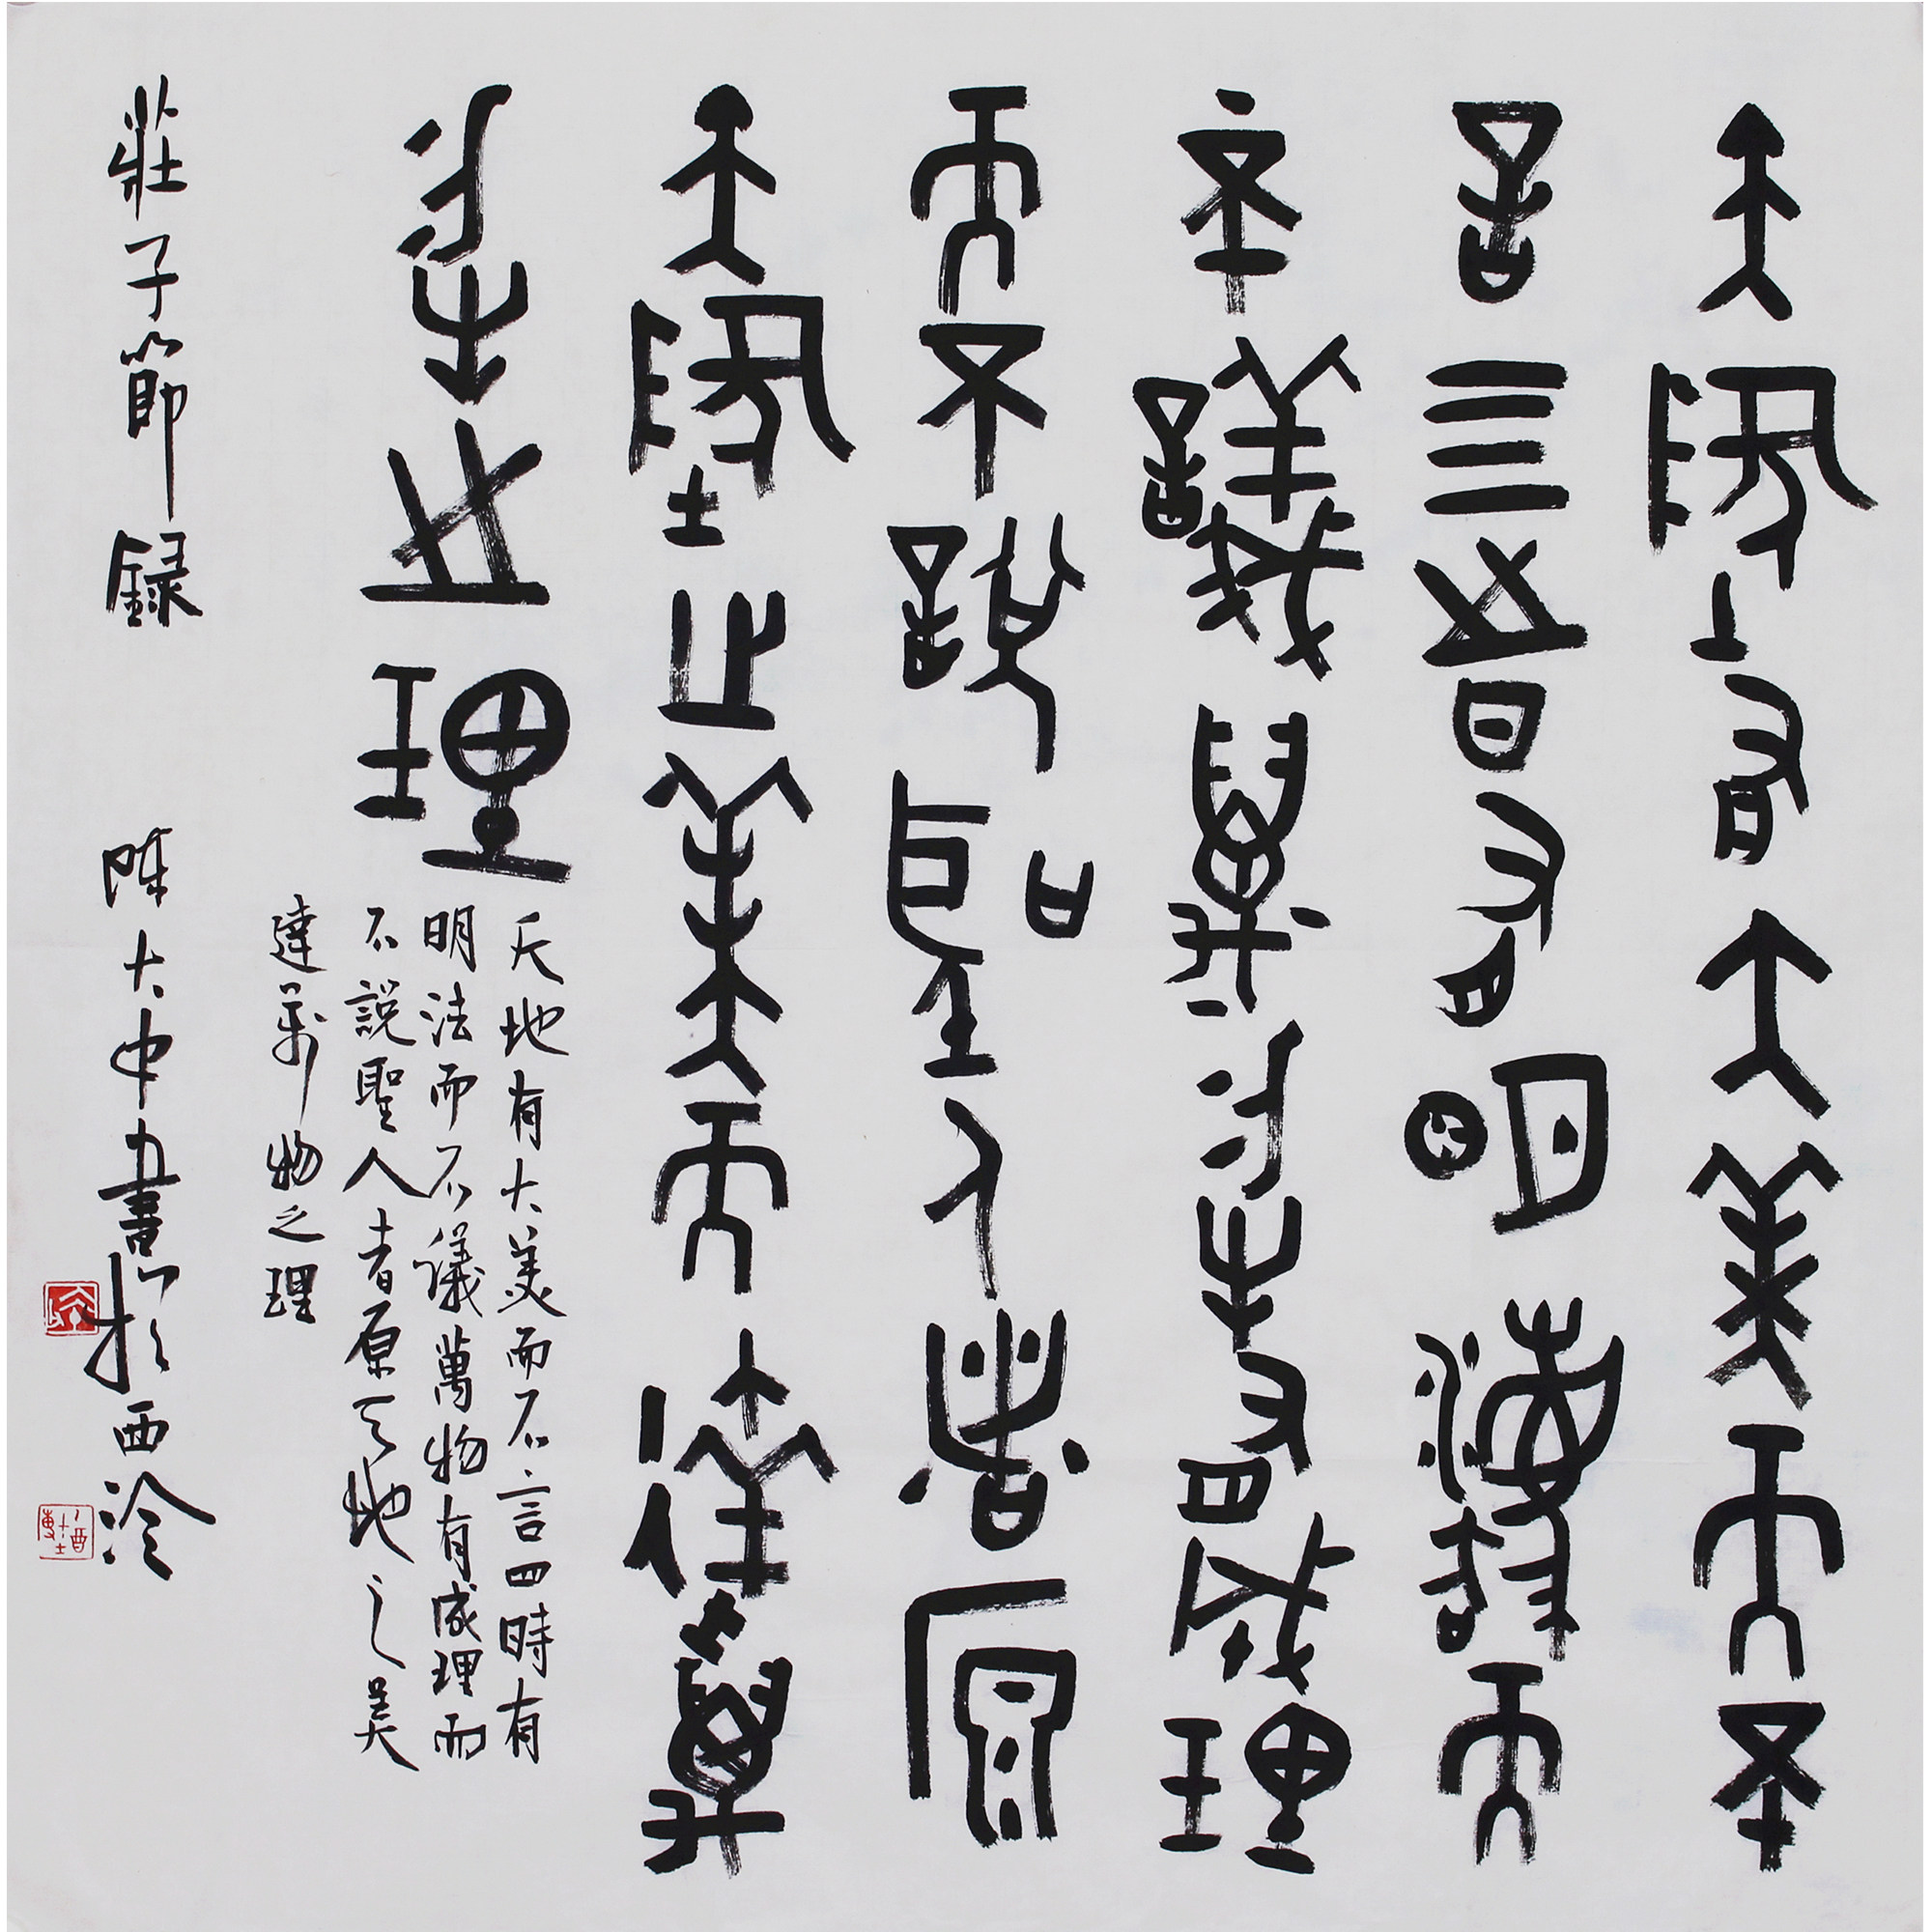 天地有大美而不
言四時有明法而
不議萬物有成理
而不說聖人者原
天地之美而達萬
物之理
天地有大美而不言四時有
明法而不議萬物有成理而
不說聖人者原天地之美
達萬物之理
莊子節録 陳大中書於西泠